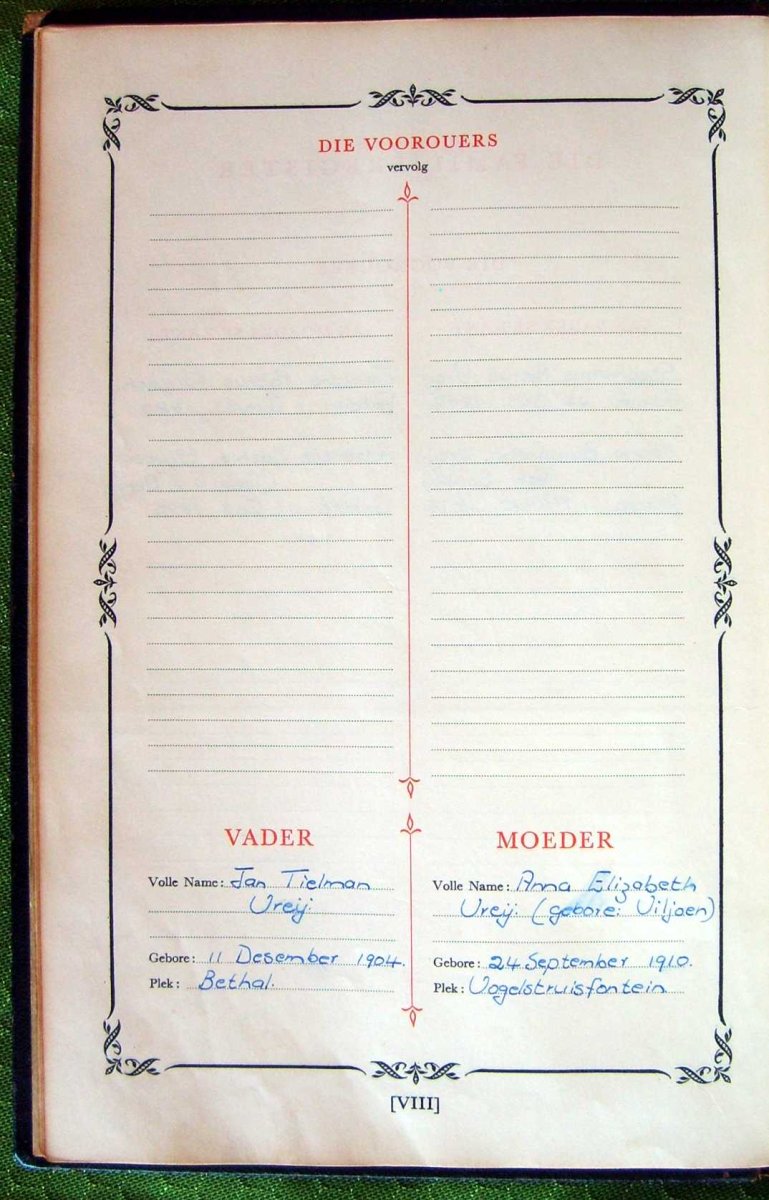 DIE VOOROUERS
vervolg
VADER
Volle Name: Jan Tielman
Vreij.
Gebore: 11 Desember 1904.
Plek: Bethal.
MOEDER
Volle Name: Anna Elizabeth
Vreij. (gebore: Viljoen)
Gebore: 24 September 1910.
Plek: Vogelstruisfontein
[VIII]